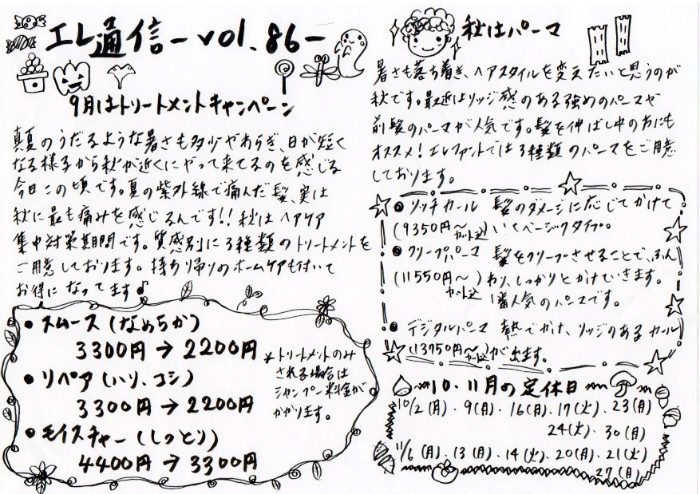 エレ通信-vol.86-
9月はトリートメントキャンペーン
真夏のうだるような暑さも多少やわらぎ、日が短く
なる様子から秋が近くにやって来てるのを感じる
今日この頃です。夏の紫外線で痛んだ髪、実は
秋に最も痛みを感じるんです!!秋はヘアケア
集中対策期間です。質感別に3種類のトリートメントを
ご用意しております。持ち帰りのホームケアも付いて
お得になってます♪
●スムース(なめらか)
3300円→2200円
●リペア(ハリ、コシ)
3300円→2200円
●モイスチャー(しっとり)
4400円→3300円
*トリートメントのみ
される場合は
シャンプー料金が
かかります。
秋はパーマ
暑さも落ち着き、ヘアスタイルを変えたいと思うのが
秋です。最近はリッジ感のある強めのパーマや
前髪のパーマが人気です。髪を伸ばし中の方にも
オススメ!エレファントでは3種類のパーマをご用意
しております。
●リッチカール 髪のダメージに応じてかけて
(9350円〜カット込)いくベーシックタイプ。
●クリープパーマ 髪をクリープさせることで、ふん
(11550円〜カット込)わり、しっかりとかけていきます。
1番人気のパーマです。
●デジタルパーマ 熱でかけ、リッジのあるカール
(13750円〜カット込)が出ます。
10、11月の定休日
10/2(月)、9(月)、16(月)、17(火)、23(月)
24(火)、30(月)
11/6(月)、13(月)、14(火)、20(月)、21(火)
27(月)